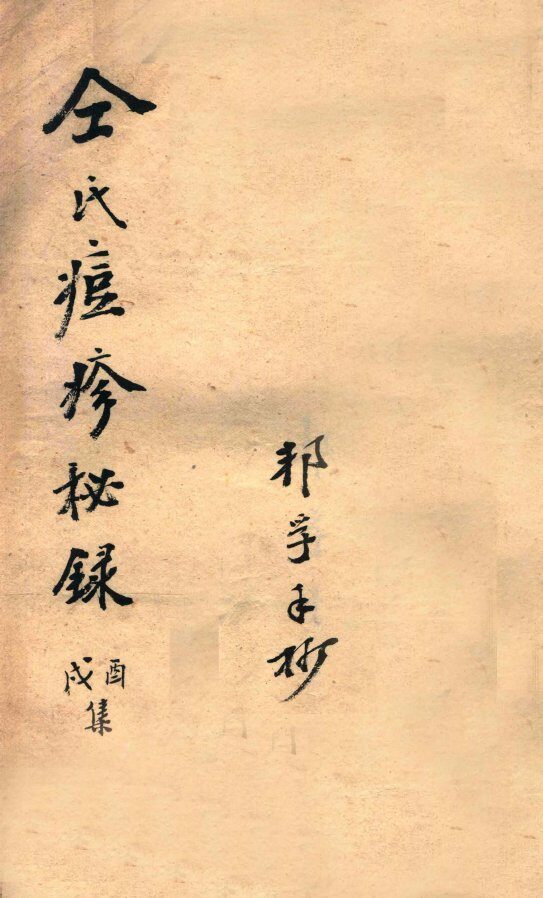 仝氏痘疹秘録
酉戌集
邦孚手抄